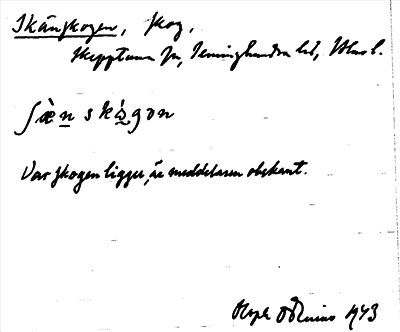 Skånskogen, skog,
Skepptuna sn, Seminghundra hd, Uhu l.
ʃæ̀n skɷ́gɷn
Var skogen ligger, är meddelaren obekant.
1943